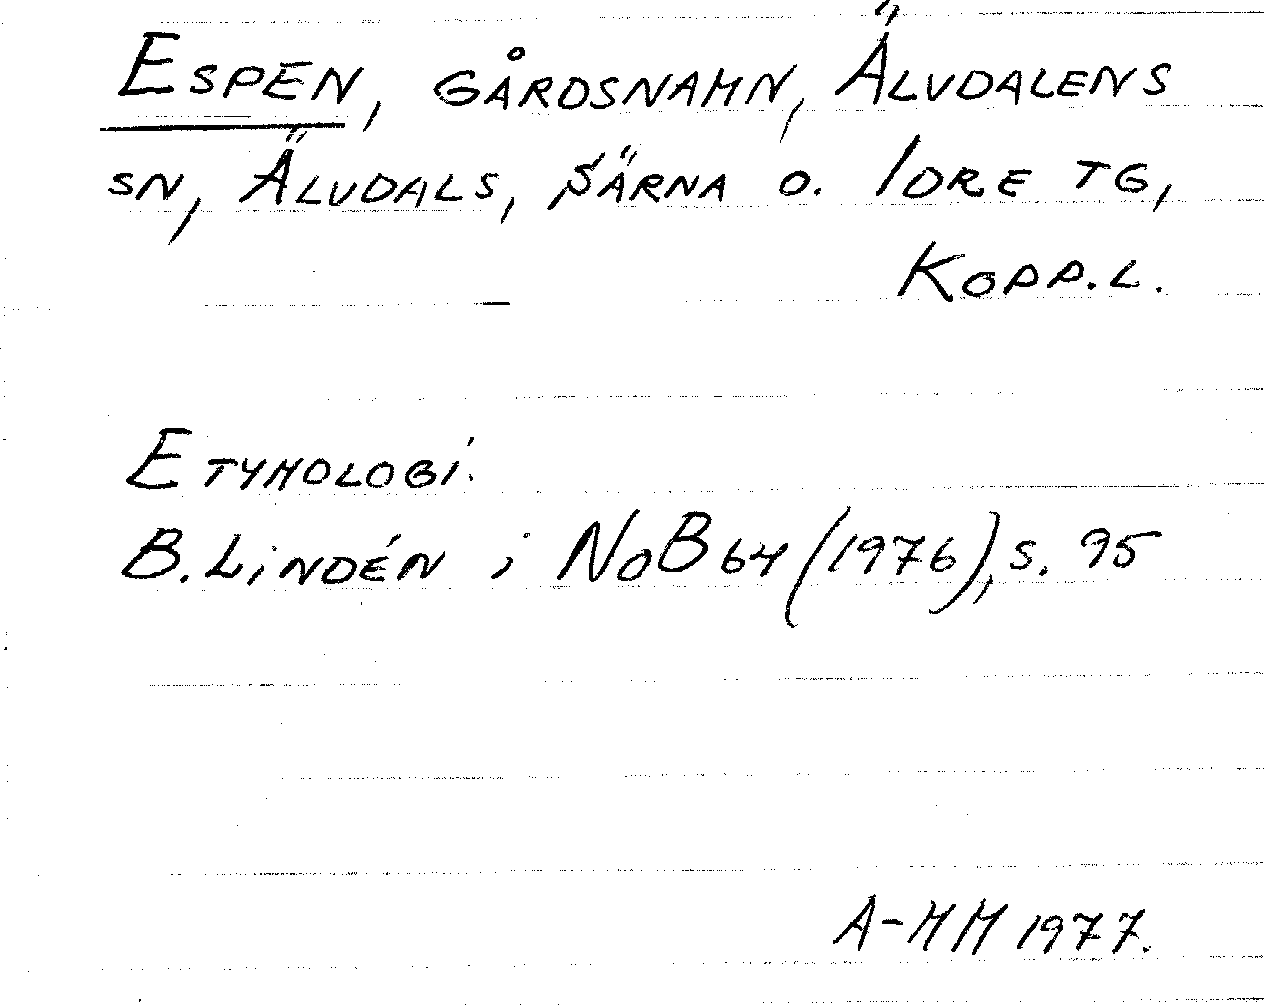 Espen, gårdsnamn, Älvdalens
sn, Älvdals, Särna o. Idre tg,
Kopp.l.
Etymologi.
B. Lindén i NoB 64 (1976), s. 95
A-MM 1977.